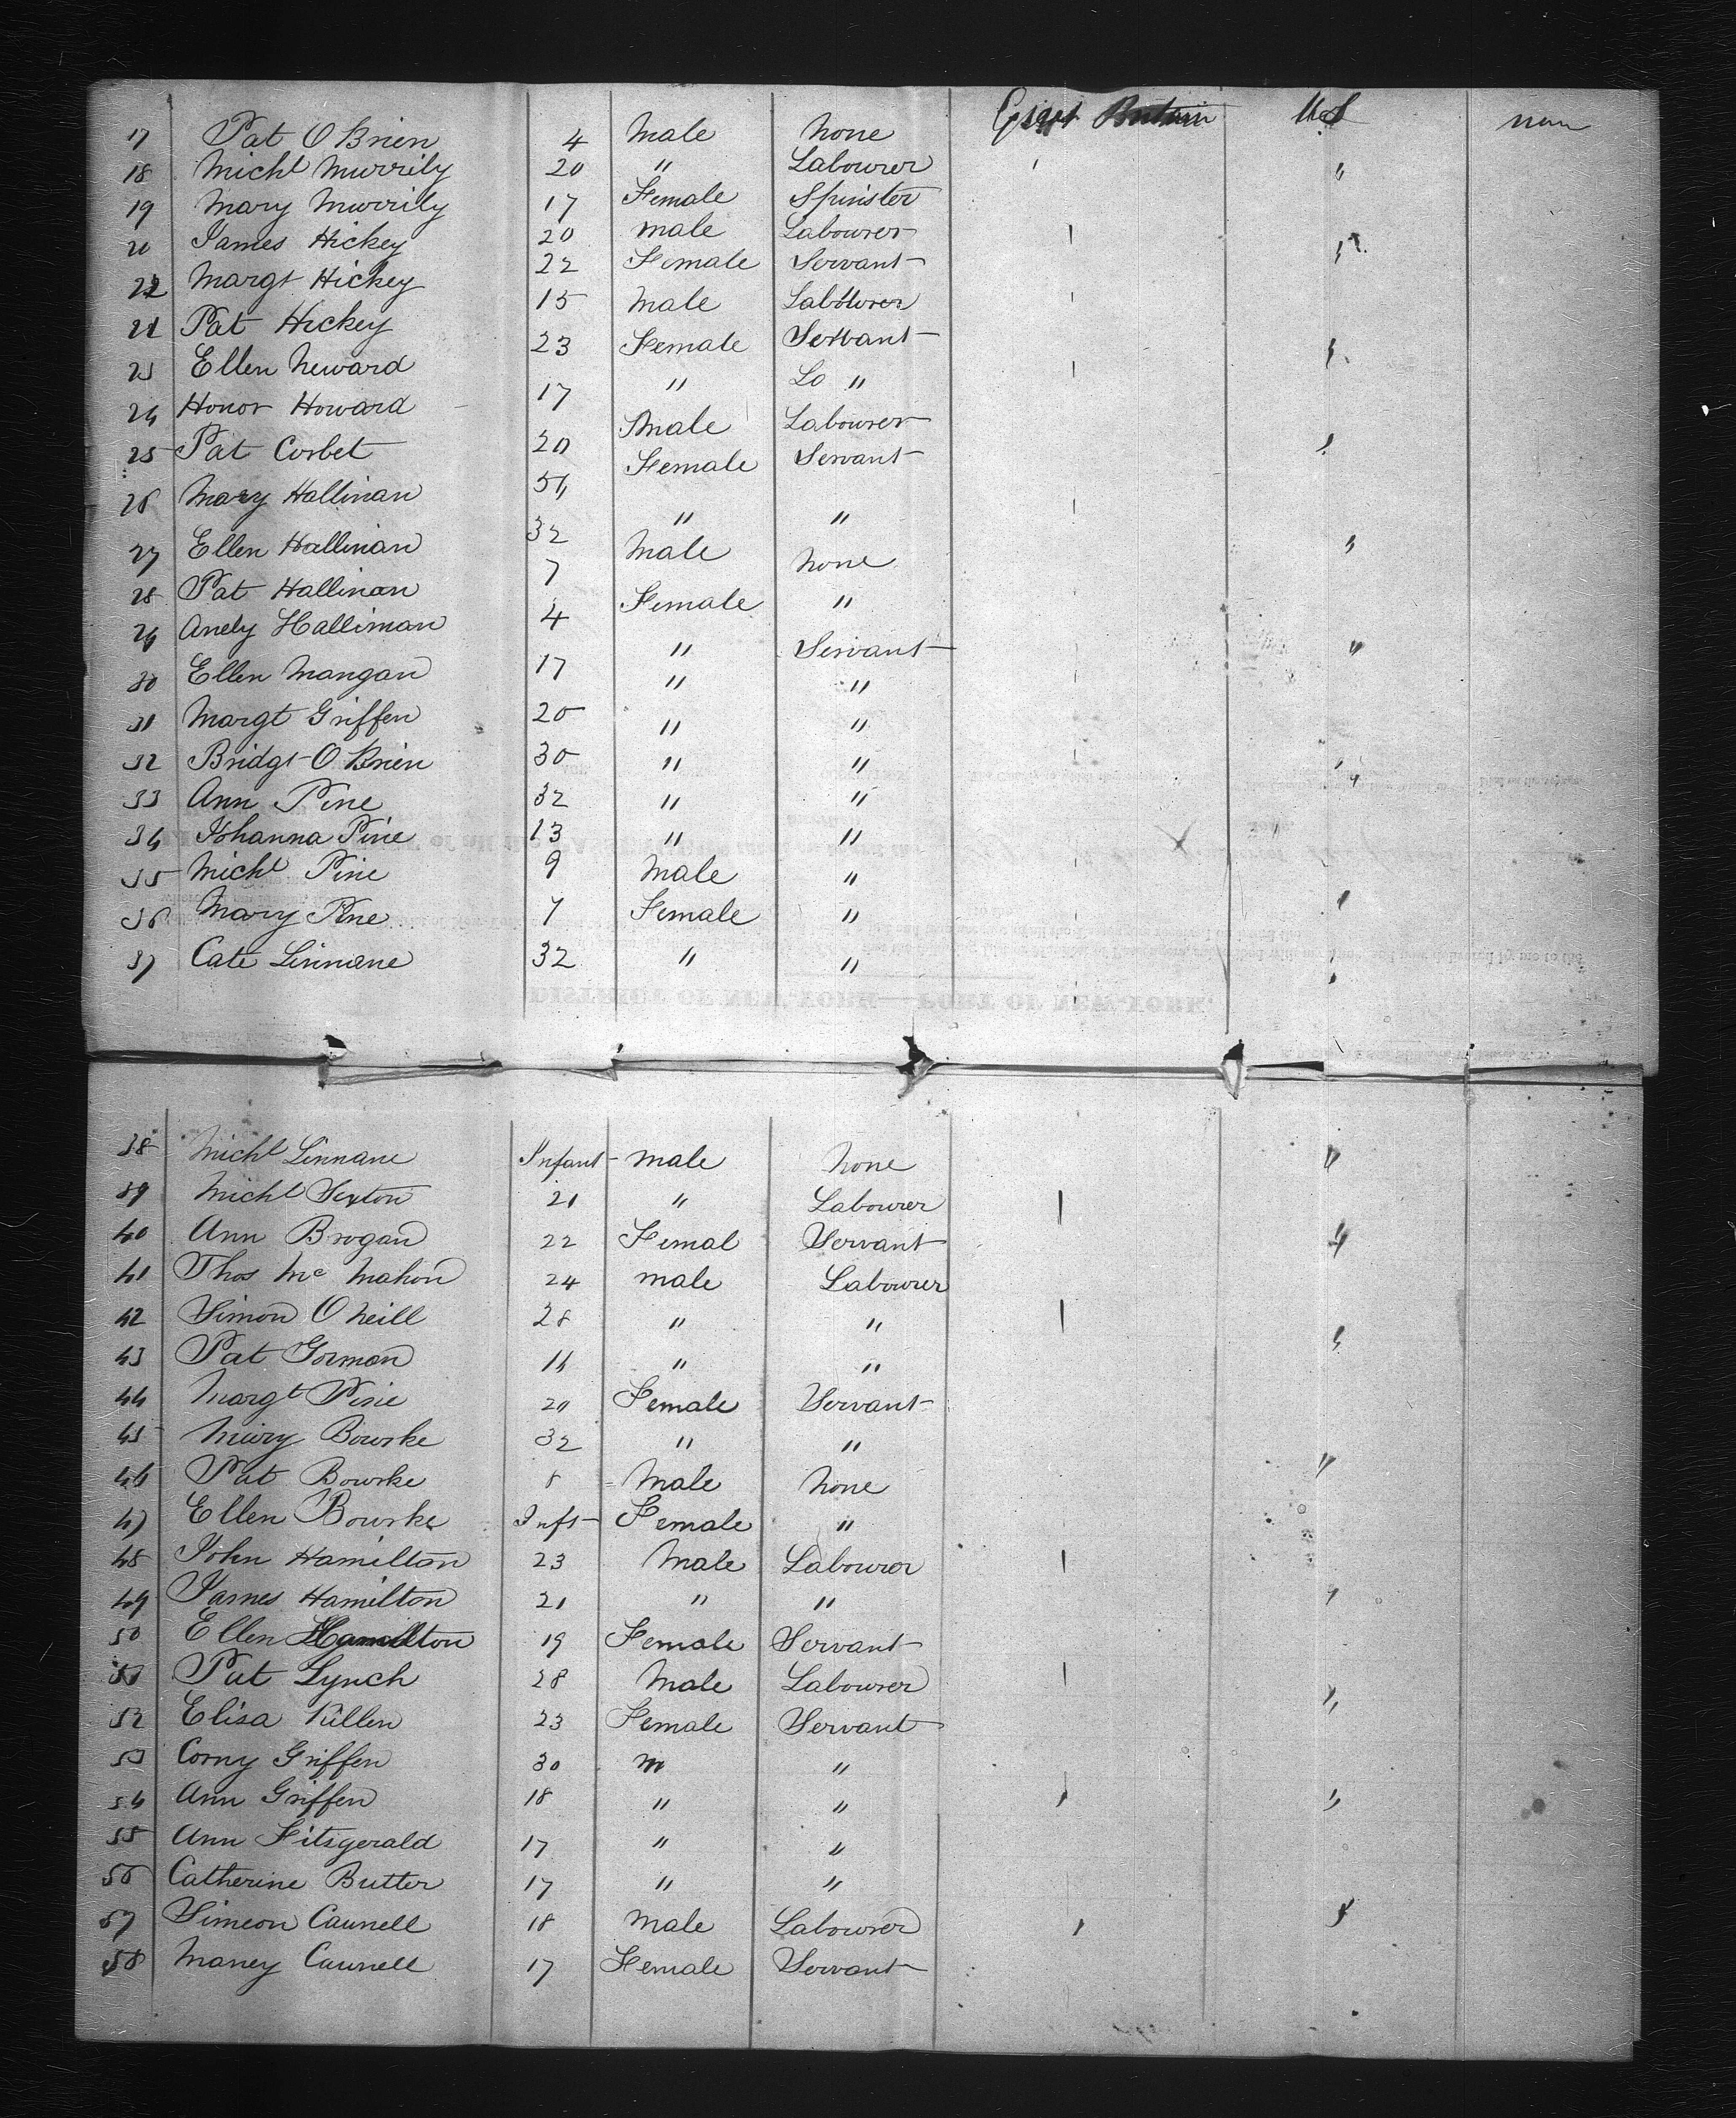 17 Pat O Brien 4 Male None Great Britain US none
18 Michl Murrily 20 " Labourer
19 Mary Murrily 17 Female Spinster
20 James Hickey 20 male Labourer
22 Margt Hickey 22 Female Servant
21 Pat Hickey 15 male Labourer
23 Ellen Heward 23 Female Servant
24 Honor Howard 17 " Do "
25 Pat Corbet 20 Male Labourer
26 Mary Hallinan 54 Female Servant
27 Ellen Hallinan 32 " "
28 Pat Hallinan 7 Male None
29 Andy Halliman 4 Female "
30 Ellen Mangan 17 " Servant
31 Margt Griffen 20 " "
32 Bridgt O Brien 30 " "
33 Ann Pine 32 " "
34 Johanna Pine 13 " "
35 Michl Pine 9 Male "
36 Mary Pine 7 Female "
37 Cate Linnane 32 " "
DISTRICT OF NEW-YORK—PORT OF NEW-YORK
38 Michl Linnane Infant male None
39 Michl Sexton 21 " Labourer
40 Ann Brogan 22 Femal Servant
41 Thos Mc Mahon 24 male Labourer
42 Simon O Neill 28 " "
43 Pat Gorman 14 " "
44 Margt Pine 20 Female Servant
45 Mary Bourke 32 " "
46 Pat Bourke 8 Male None
47 Ellen Bourke Inft Female "
48 John Hamilton 23 Male Labourer
49 James Hamilton 21 " "
50 Ellen Hamilton 19 Female Servant
51 Pat Lynch 28 Male Labourer
52 Elisa Killen 23 Female Servant
53 Corny Griffen 30 m "
54 Ann Griffen 18 " "
55 Ann Fitsgerald 17 " "
56 Catherine Butter 17 " "
57 Simeon Caunell 18 male Labourer
58 Maney Caunell 17 Female Servant